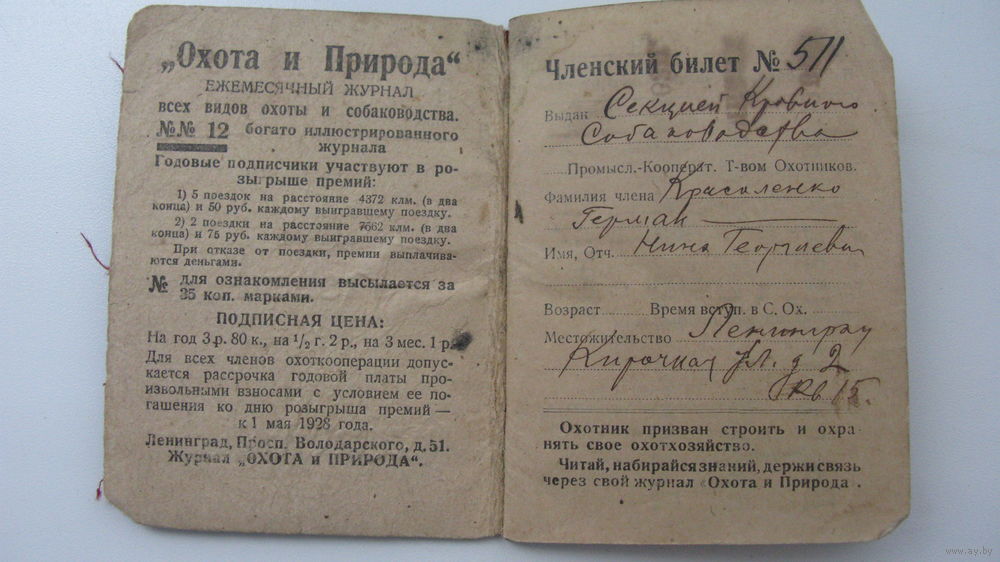 „Охота и Природа“
ЕЖЕМЕСЯЧНЫЙ ЖУРНАЛ
всех видов охоты и собаководства.
№№ 12 богато иллюстрированного
журнала
Годовые подписчики участвуют в ро-
зыгрыше премий:
1) 5 поездок на расстояние 4372 клм. (в два
конца) и 50 руб. каждому выигравшему поездку.
2) 2 поездки на расстояние 7662 клм. (в два
конца) и 75 руб. каждому выигравшему поездку.
При отказе от поездки, премии выплачива-
ются деньгами.
№ для ознакомления высылается за
35 коп. марками.
ПОДПИСНАЯ ЦЕНА:
На год 3 р. 80 к., на 1/2 г. 2 р., на 3 мес. 1 р.
Для всех членов охоткооперации допус-
кается рассрочка годовой платы про-
извольными взносами с условием ее по-
гашения ко дню розыгрыша премий—
к 1 мая 1928 года.
Ленинград, Просп. Володарского, д. 51.
Журнал „ОХОТА и ПРИРОДА“.
Членский билет № 511
Выдан Секцией Кровного
Собаководства
Промысл.-Кооперат. Т-вом Охотников.
Фамилия члена Красаленко
Герман
Имя, Отч. Нина Георгиевна
Возраст Время вступ. в С. Ох.
Местожительство Ленинград
Кирочная ул. д 2
кв 15.
Охотник призван строить и охра
нять свое охотхозяйство.
Читай, набирайся знаний, держи связь
через свой журнал «Охота и Природа».
www.ay.by